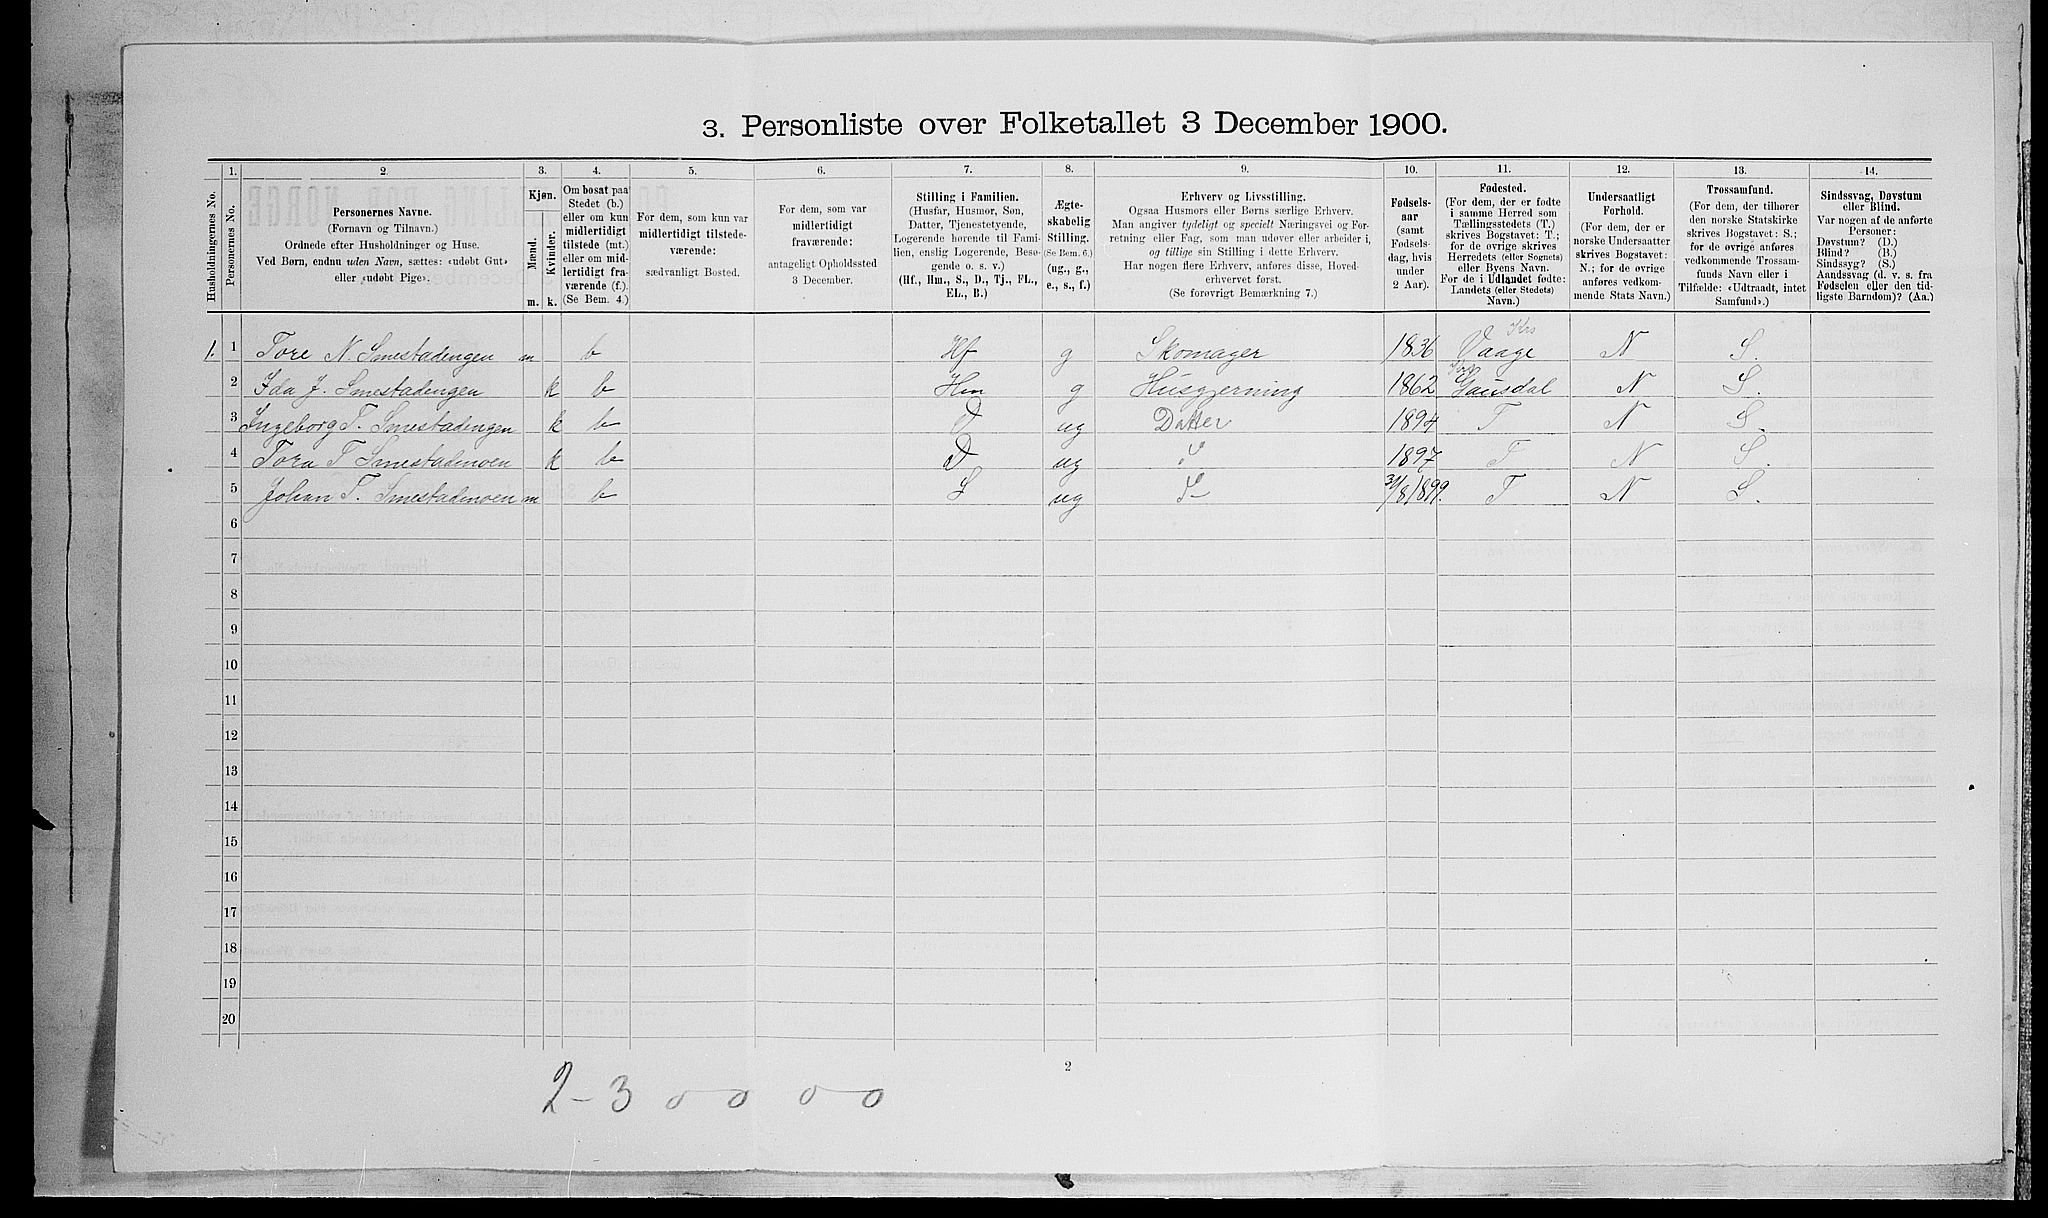 3. Personliste over Folketallet 3 December 1900.
Husholdningernes No.
1.
Personernes No.
2.
Personernes Navne.
(Fornavn og Tilnavn.)
Ordnede efter Husholdninger og Huse.
Ved Børn, endnu uden Navn, sættes: «udøbt Gut»
eller «udøbt Pige».
3.
Kjøn.
Mænd.
Kvinder.
m. k.
4.
Om bosat paa
Stedet (b.)
eller om kun
midlertidigt
tilstede (mt.)
eller om mid-
lertidigt fra-
værende (f.).
(Se Bem. 4.)
5.
For dem, som kun var
midlertidigt tilstede-
værende:
sædvanligt Bosted.
6.
For dem, som var
midlertidigt
fraværende:
antageligt Opholdssted
3 December.
7.
Stilling i Familien.
(Husfar, Husmor, Søn,
Datter, Tjenestetyende,
Logerende hørende til Fami-
lien, enslig Logerende, Besø-
gende o. s. v.)
(Hf., Hm., S., D., Tj., FL.,
EL., B.)
8.
Ægte-
skabelig
Stilling.
(Se Bem. 6.)
(ug., g.,
e., s., f.)
9.
Erhverv og Livsstilling.
Ogsaa Husmors eller Børns særlige Erhverv.
Man angiver tydeligt og specielt Næringsvei og For-
retning eller Fag, som man udøver eller arbeider i,
og tillige sin Stilling i dette Erhverv.
Har nogen flere Erhverv, anføres disse, Hoved-
erhvervet først.
(Se forøvrigt Bemærkning 7.)
10.
Fødsels-
aar
(samt
Fødsels-
dag, hvis
under
2 Aar).
11.
Fødested.
(For dem, der er fødte
i samme Herred som
Tællingsstedets (T.)
skrives Bogstavet: T.;
for de øvrige skrives
Herredets (eller Sognets)
eller Byens Navn.
For de i Udlandet fødte:
Landets (eller Stedets)
Navn.)
12.
Undersaatligt
Forhold.
(For dem, der er
norske Undersaatter
skrives Bogstavet:
N.; for de øvrige
anføres vedkom-
mende Stats Navn.)
13.
Trossamfund.
(For dem, der tilhører
den norske Statskirke
skrives Bogstavet: S.;
for de øvrige anføres
vedkommende Trossam-
funds Navn eller i
Tilfælde: «Udtraadt, intet
Samfund».)
14.
Sindssvag, Døvstum
eller Blind.
Var nogen af de anførte
Personer:
Døvstum? (D.)
Blind? (B.)
Sindssyg? (S.)
Aandssvag (d. v. s. fra
Fødselen eller den tid-
ligste Barndom)? (Aa.)
Krs
1. 1 Tore N. Smestadengen m b Hf g Skomager 1836 Vaage N S.
2 Ida J. Smestadengen k b Hm g Husgjerning 1862 Gausdal N S.
3 Ingeborg T. Smestadengen k b D ug Datter 1894 T N S.
4 Tora T Smestadmoen k b D ug 1897 T N S.
5 Johan T. Smestadmoen m b S ug 31/8 1899. T N S.
6
7
8
9
10
11
12
13
14
15
16
17
18
19
20
2
2-3 0-0 0-0